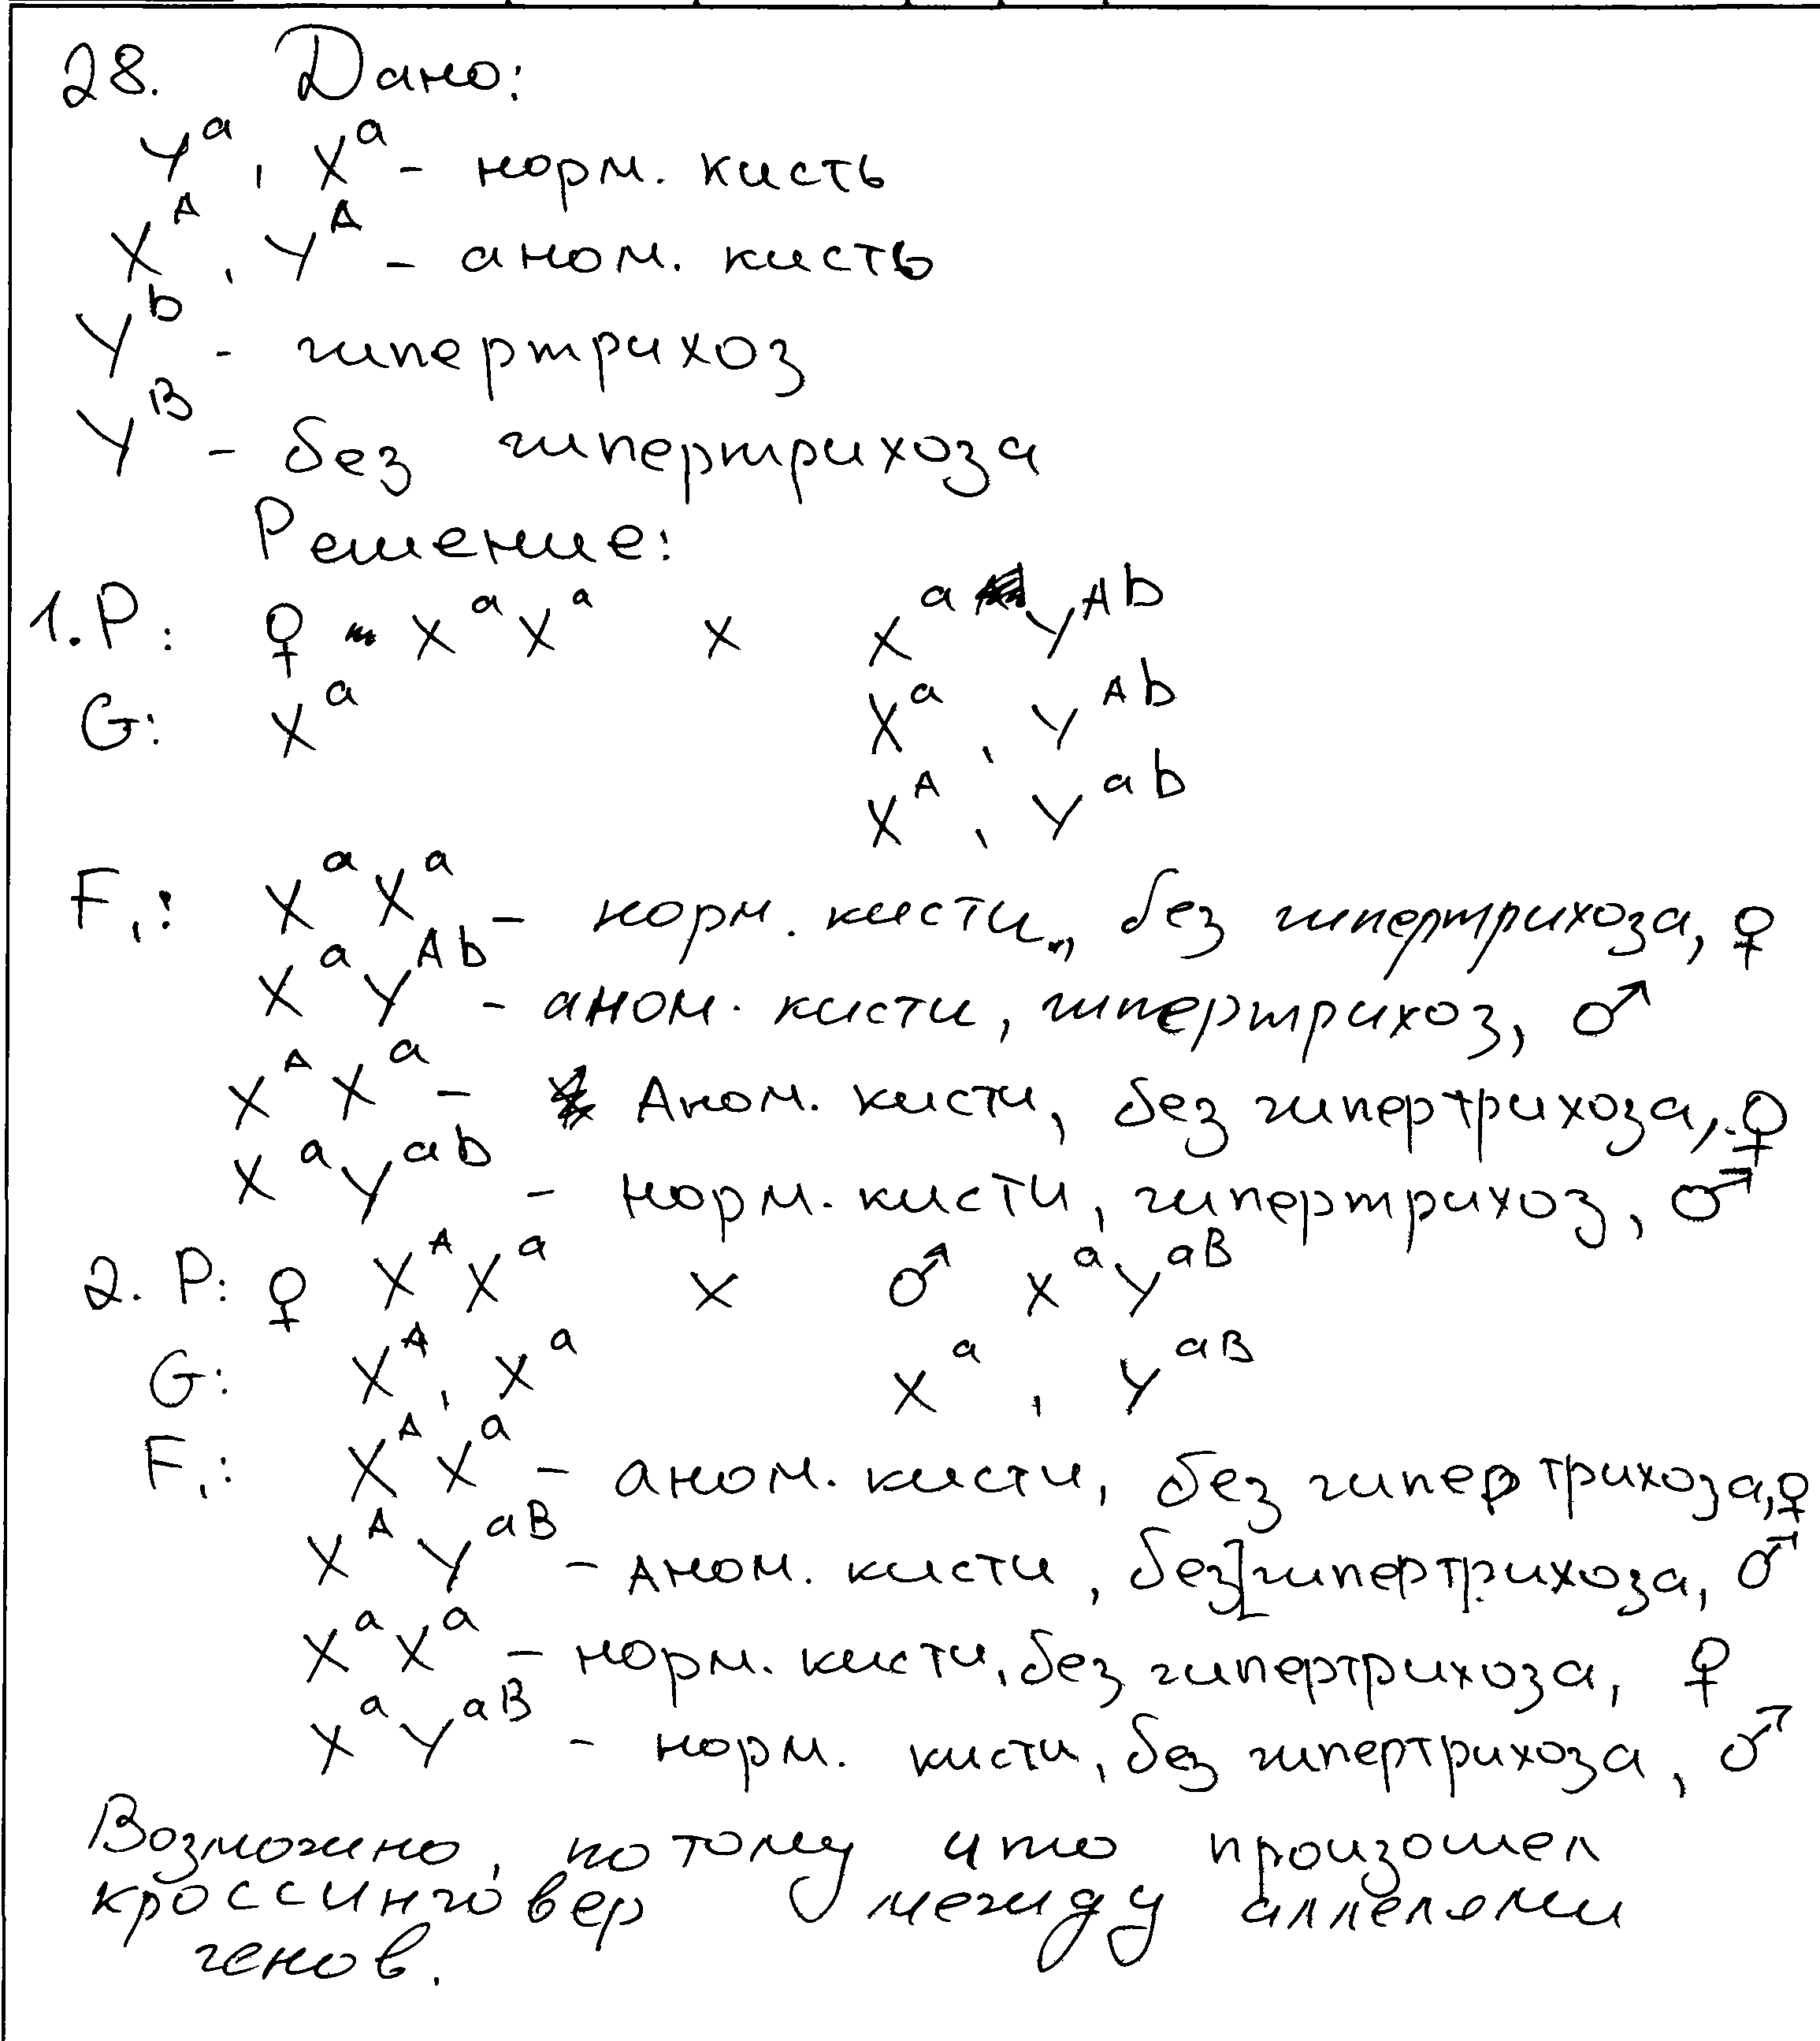 28. Дано:
Yᵃ, Xᵃ - норм. кисть
Xᴬ, Yᴬ - аном. кисть
Yᵇ - гипертрихоз
Yᴮ - без гипертрихоза
Решение:
1. P: ♀ XᵃXᵃ x XᵃYᴬᵇ
G: Xᵃ Xᵃ, Yᴬᵇ
Xᴬ, Yᵃᵇ
F₁: XᵃXᵃ - норм. кисти, без гипертрихоза, ♀
XᵃYᴬᵇ - аном. кисти, гипертрихоз, ♂
XᴬXᵃ - Аном. кисти, без гипертрихоза, ♀
XᵃYᵃᵇ - норм. кисти, гипертрихоз, ♂
2. P: ♀ XᴬXᵃ x ♂ XᵃYᵃᴮ
G: Xᴬ, Xᵃ Xᵃ, Yᵃᴮ
F₁: XᴬXᵃ - аном. кисти, без гипертрихоза, ♀
XᴬYᵃᴮ - Аном. кисти, без гипертрихоза, ♂
XᵃXᵃ - норм. кисти, без гипертрихоза, ♀
XᵃYᵃᴮ - норм. кисти, без гипертрихоза, ♂
Возможно, потому что произошел
кроссинговер между аллелями
генов.